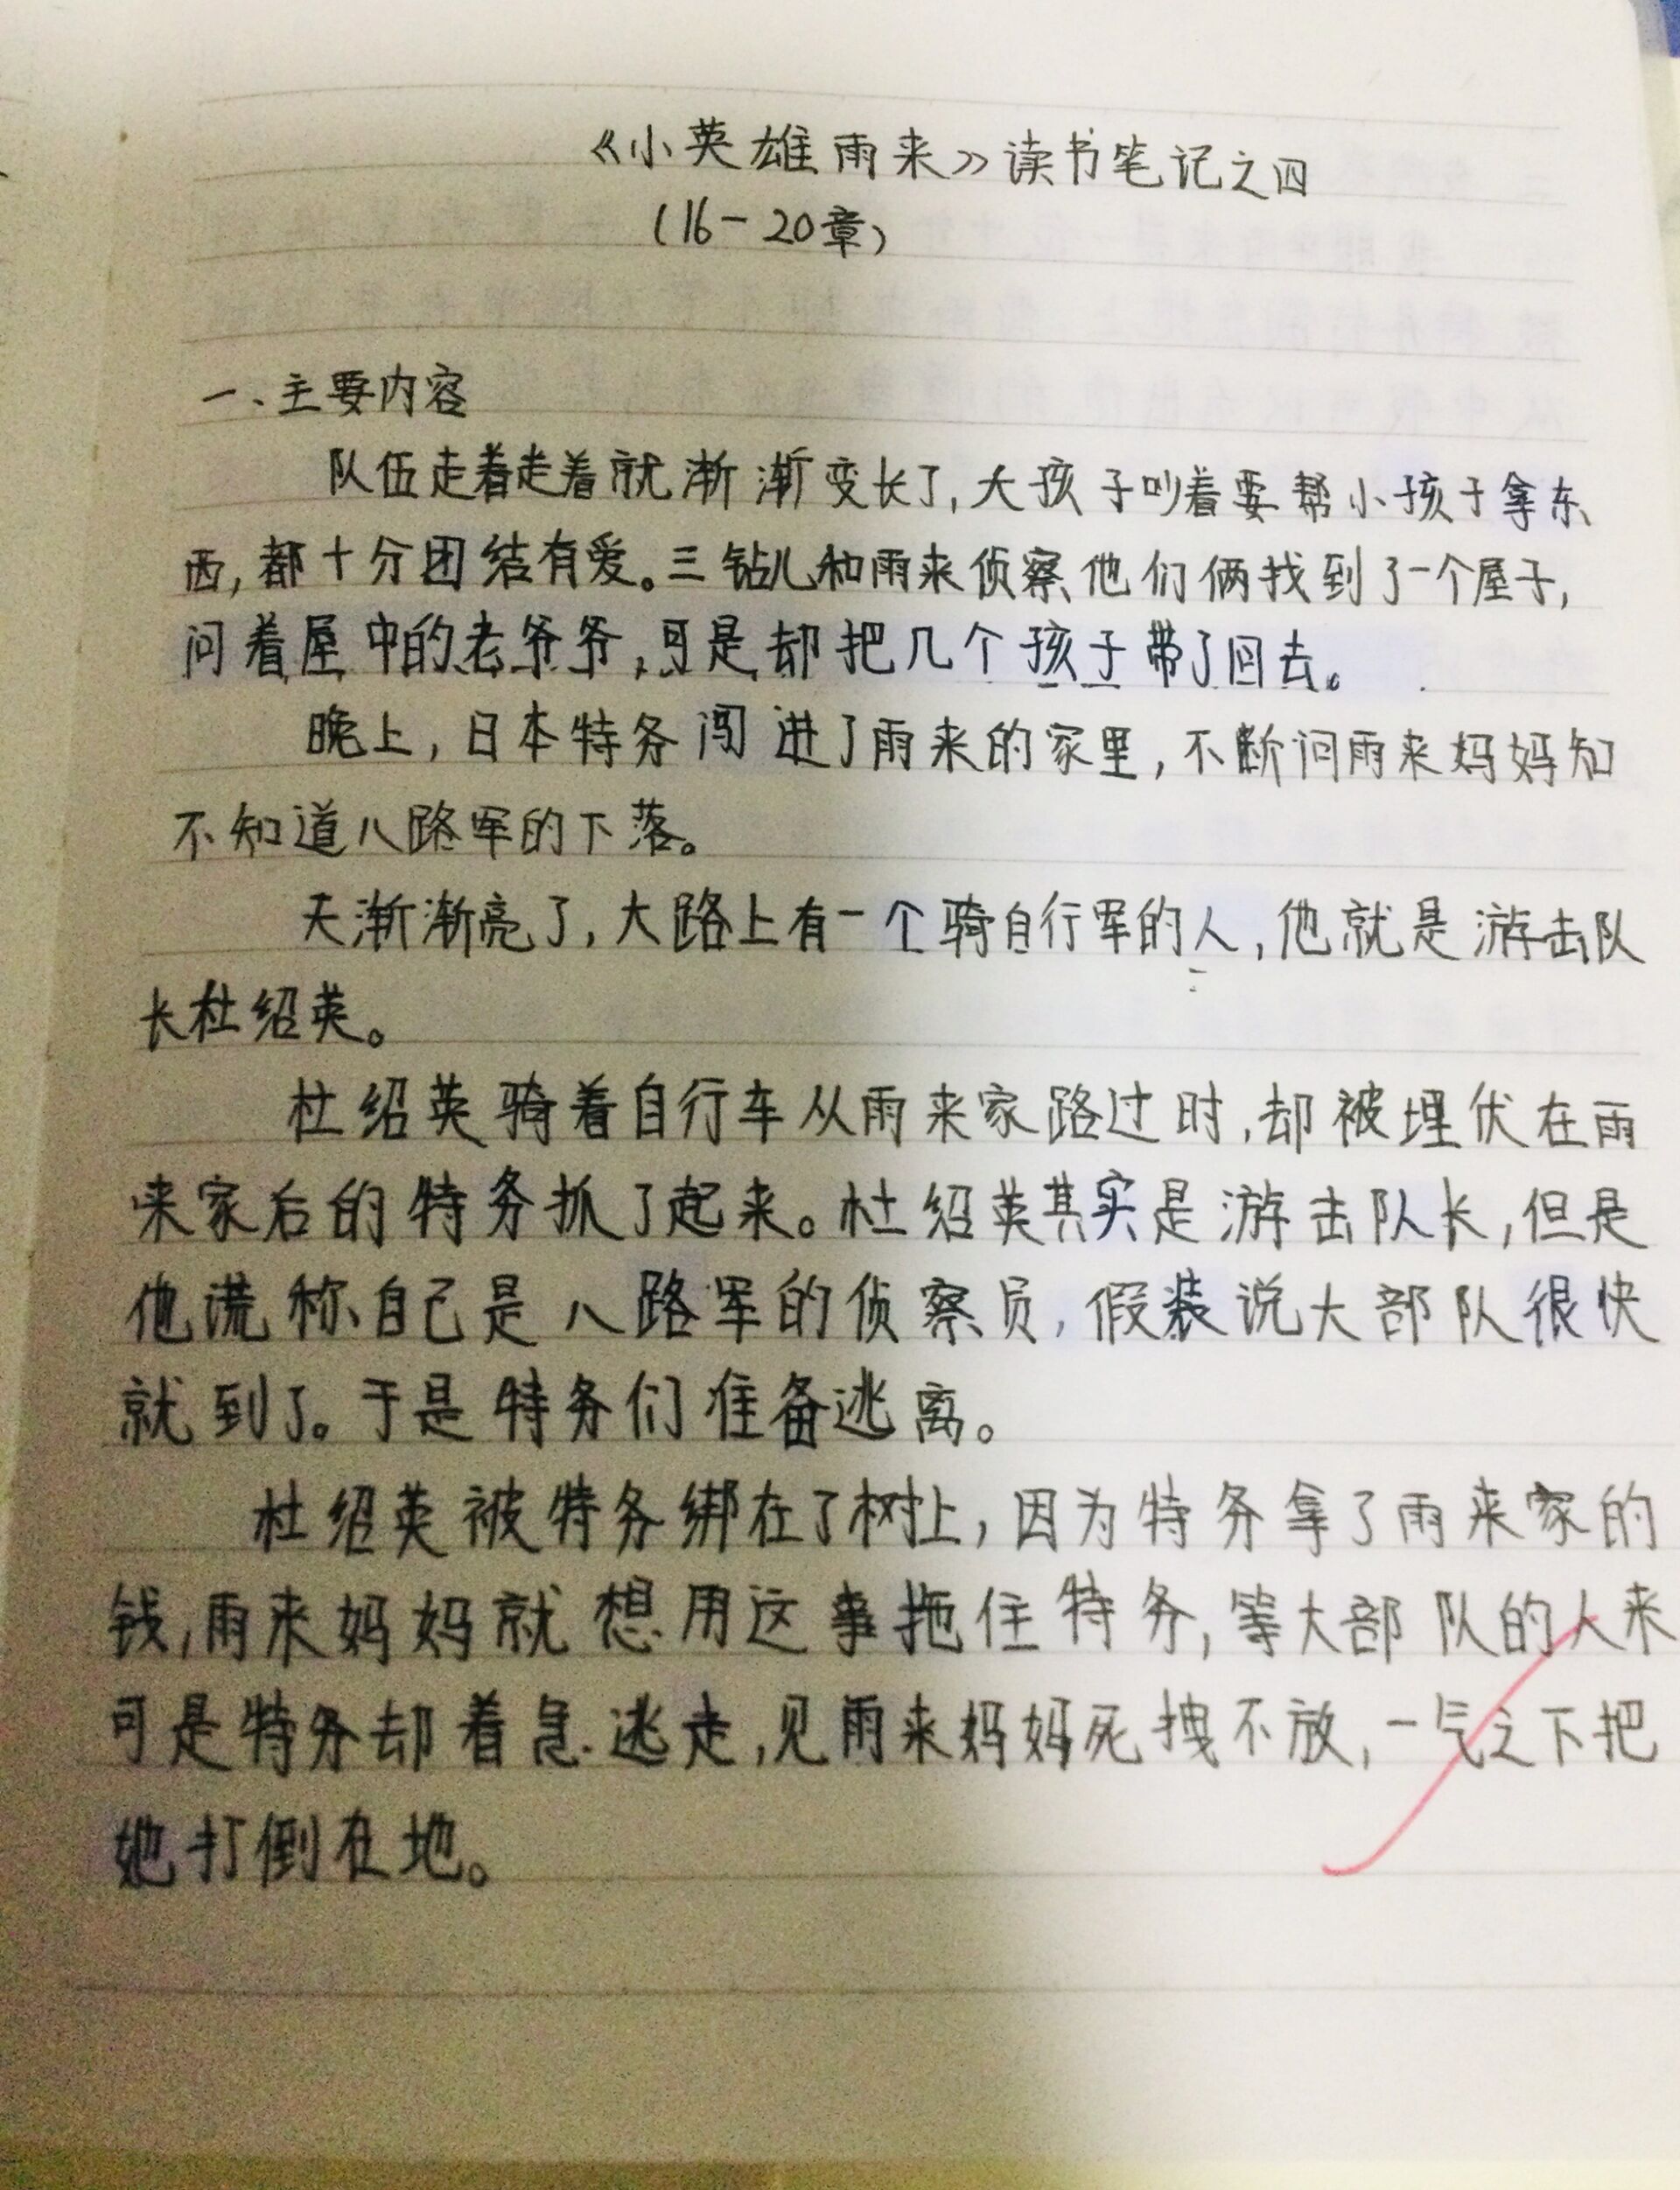 《小英雄雨来》读书笔记之四
(16-20章)
一、主要内容
队伍走着走着就渐渐变长了,大孩子吵着要帮小孩子拿东
西,都十分团结有爱。三钻儿和雨来侦察,他们俩找到了一个屋子,
问着屋中的老爷爷,可是却把几个孩子带了回去。
晚上,日本特务闯进了雨来的家里,不断问雨来妈妈知
不知道八路军的下落。
天渐渐亮了,大路上有一个骑自行军的人,他就是游击队
长杜绍英。
杜绍英骑着自行车从雨来家路过时,却被埋伏在雨
来家后的特务抓了起来。杜绍英其实是游击队长,但是
他谎称自己是八路军的侦察员,假装说大部队很快
就到了。于是特务们准备逃离。
杜绍英被特务绑在了树上,因为特务拿了雨来家的
钱,雨来妈妈就想用这事拖住特务,等大部队的人来
可是特务却着急逃走,见雨来妈妈死拽不放,一气之下把
她打倒在地。